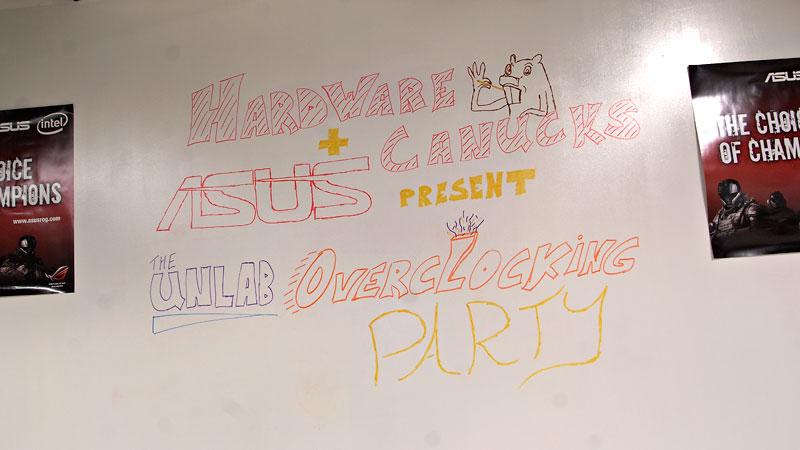 HARDWARE
CANUCKS
+
ASUS
PRESENT
THE
UNLAB
OVERCLOCKING
PARTY
SUS intel
OICE
MPIONS
www.asusrog.com
ASUS
THE CHOI
OF CHAM